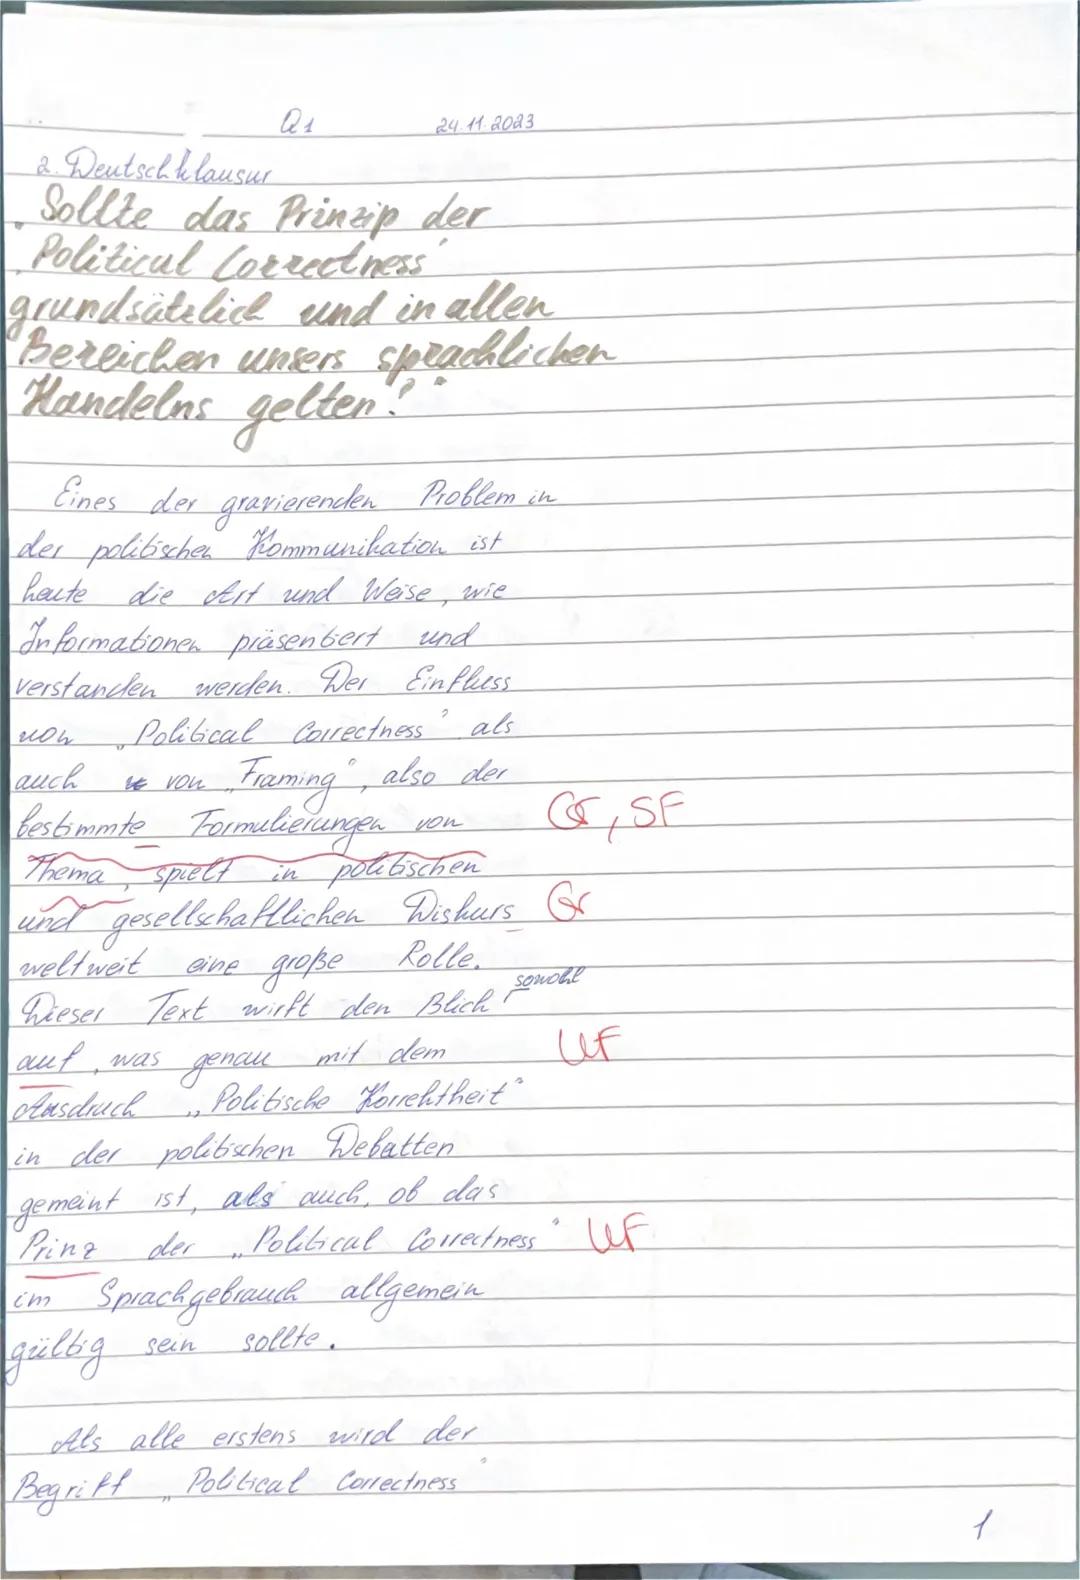 Q1 24.11.2023
2. Deutschklausur
„Sollte das Prinzip der
„Political Correctness“
grundsätzlich und in allen
Bereichen unsers sprachlichen
Handelns gelten?“
Eines der gravierenden Problem in
der politischen Kommunikation ist
heute die Art und Weise, wie
Informationen präsentiert und
verstanden werden. Der Einfluss
von „Political Correctness“ als
auch von „Framing“, also der
bestimmte Formulierungen von Gr, SF
Thema, spielt in politischen
und gesellschaftlichen Diskurs Gr
weltweit eine große Rolle.
Dieser Text wirft den Blick sowohl
auf, was genau mit dem UF
Ausdruck „Politische Korrektheit“
in der politischen Debatten
gemeint ist, als auch, ob das
Prinz der „Political Correctness“ UF
im Sprachgebrauch allgemein
gültig sein sollte.
Als alle erstens wird der
Begriff „Political Correctness“
1